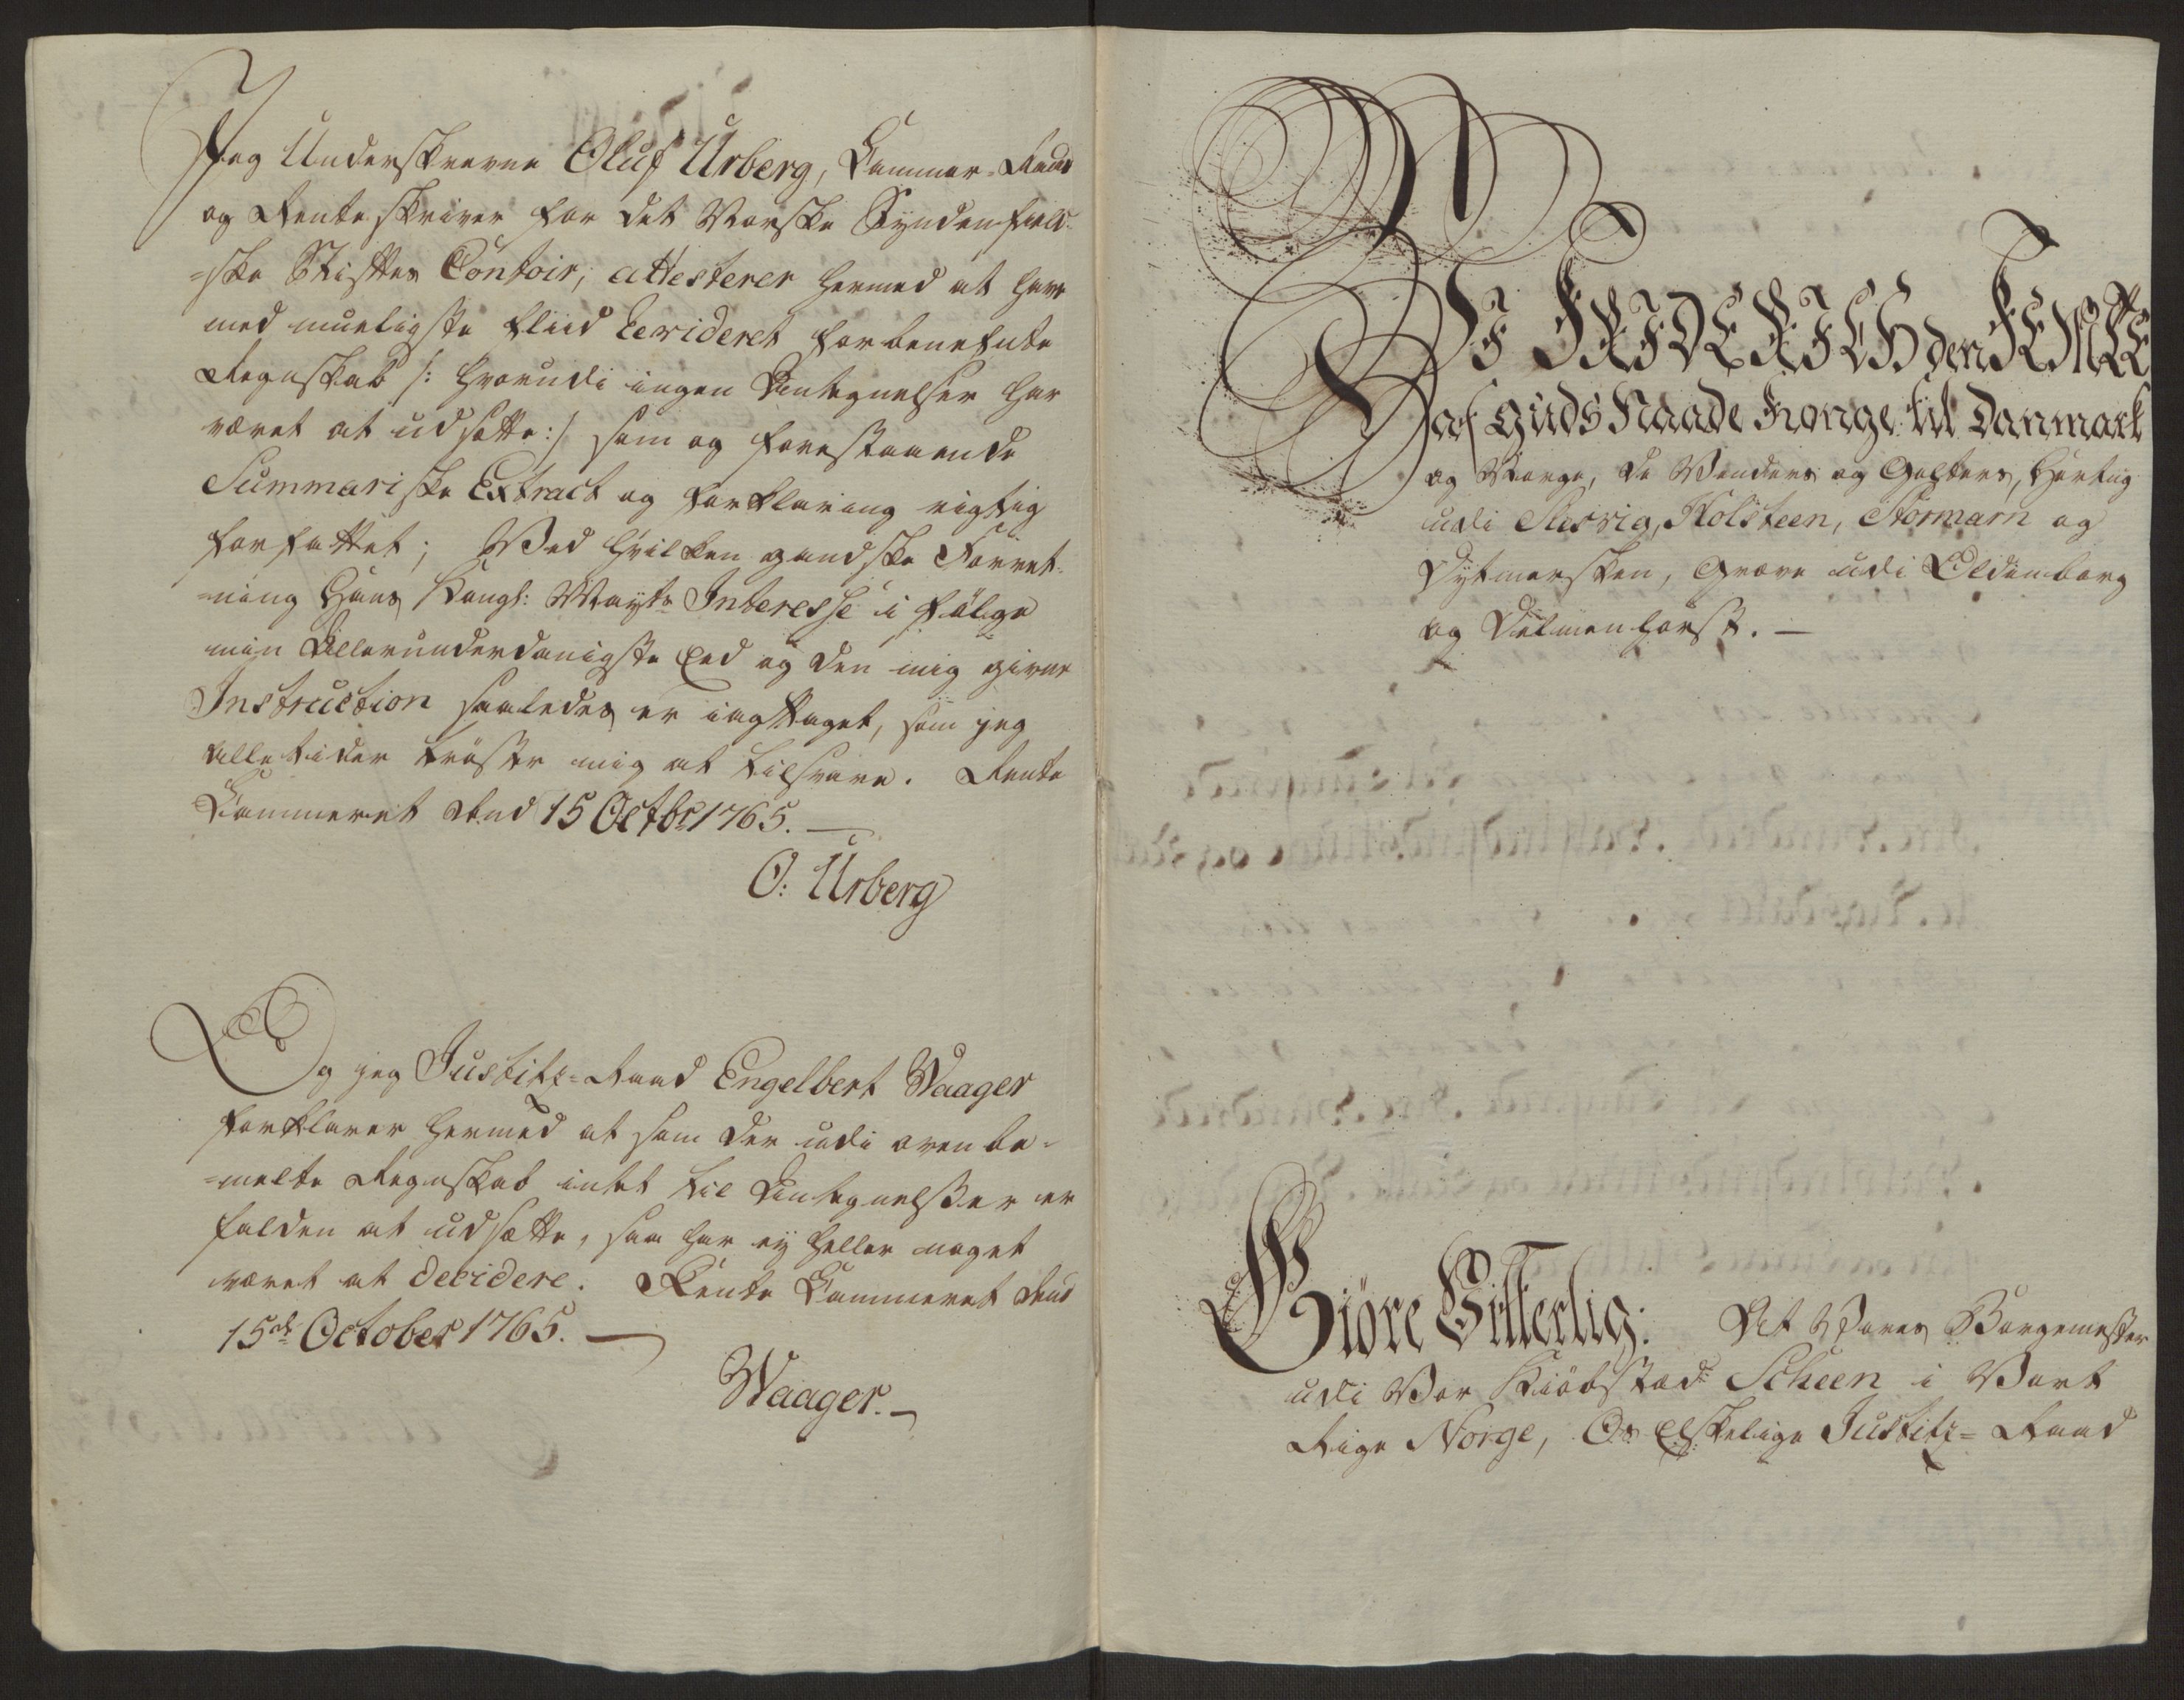 Jeg Underskrevne Oluf Urberg, Cammer-Raad
og Renteskriver for det Norske Syndenfield-
=ske Stifttes Contoir, attesterer hermed at have
med mueligste fliid Revideret forbenefnte
Regnskab /: hvorudi ingen Antegnelser har
været at udsætte :/ som og forestaaende
Summariske Extract og forklaring rigtig
forfattet; Ved hvilken gandske Forret-
=ning Hans Kongl: Mayts Interesse i følge
min Allerunderdanigste Eed og den mig givne
Instruction saaledes er iagttaget, som jeg
alletider trøster mig at tilsvare. Rente
Cammeret dend 15 Octbr 1765.
O: Urberg
Og jeg Justitz=Raad Engelbert Waager
forklarer hermed at som der udi ovenbe-
=melte Regnskab intet til Antegnelsser er
falden at udsætte, saa har ey heller noget
været at decidere. Rente Cammeret dend
15de October 1765.
Waager.
VI FRIDERICH den FEMTE
af Guds Naade Konge til Danmark
og Norge, de Venders og Gothers, Hertug
udi Slesvig, Holsteen, Stormarn og
Dytmersken, Greve udi Oldenborg
og Delmenhorst.
Giöre Vitterlig: At Vores Borgemester
udi Vor Kiøbstad Scheen i Vort
Rige Norge, Os Elskelige Justitz=Raad